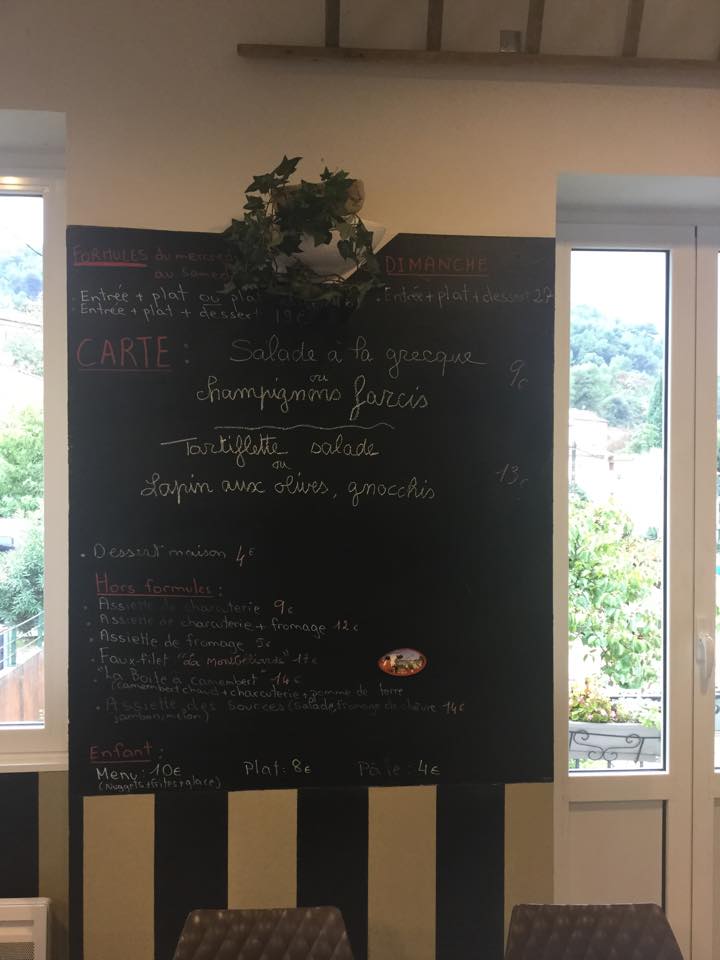 FORMULES du mercredi
au samedi
DIMANCHE
. Entrée + plat ou plat
. Entrée + plat + dessert 27
. Entrée + plat + dessert 19€
CARTE : Salade à la grecque 9€
ou
champignons farcis
Tartiflette salade
ou
Lapin aux olives, gnocchis 13€
. Dessert maison 4€
Hors formules :
. Assiette de charcuterie 9€
. Assiette de charcuterie + fromage 12€
. Assiette de fromage
. Faux-filet "La Montbéliarde" 17€
. "La Boîte à camembert" 14€
(camembert chaud + charcuterie + pomme de terre
. Assiette des Sources (salade, fromage de chèvre 14€
jambon, melon)
Enfant :
Menu : 10€ Plat : 8€ Pâte : 4€
(Nuggets + frites + glace)